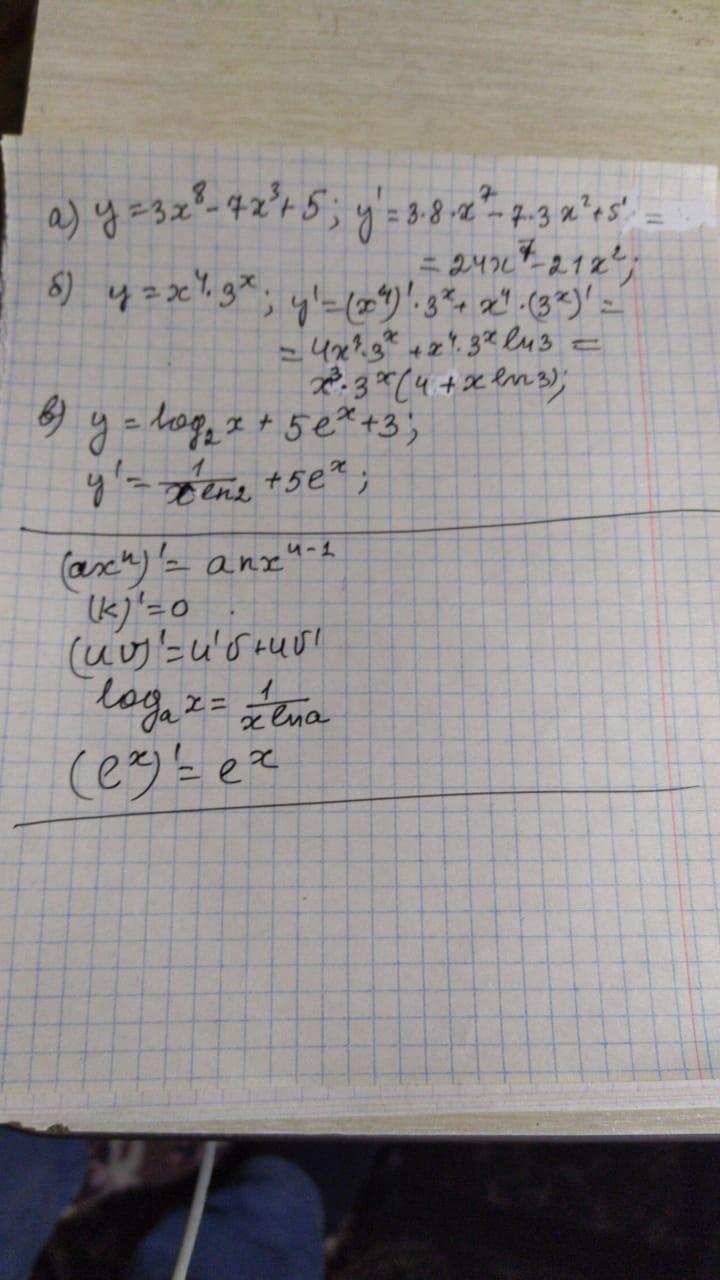 а) y = 3x⁸ - 7x³ + 5; y' = 3·8·x⁷ - 7·3x² + 5' =
= 24x⁷ - 21x²;
б) y = x⁴·3ˣ; y' = (x⁴)'·3ˣ + x⁴·(3ˣ)' =
= 4x³·3ˣ + x⁴·3ˣ ln3 =
x³·3ˣ(4 + x ln3);
в) y = log₂x + 5eˣ + 3;
y' = 1/(x ln2) + 5eˣ;
(axⁿ)' = anxⁿ⁻¹
(k)' = 0
(uv)' = u'v + uv'
logₐx = 1/(x lna)
(eˣ)' = eˣ